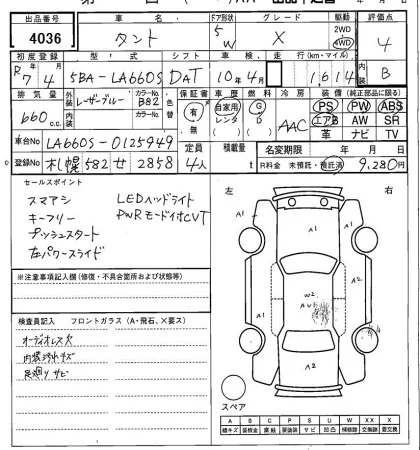 出品番号 車名 ドア形状 グレード 駆動 評価点
4036 タント 5 W X 2WD 4WD 4
初度登録 型式 シフト 車検 走行 (km・マイル) 内装
R7 4 5BA-LA660S DAT 10年4月 1,614 B
排気量 外装 カラーNo. 色替 保証書 車歴 燃料 冷房 装備 (純正部品に限る)
660 c.c. レーザーブルー B82 有 無 自家用 レンタ G D AAC PS PW ABS
エアB AW SR
内装 カラーNo. 革 ナビ TV
車台No LA660S-0125949 定員 積載量 名変期限 年 月 日
登録No 札幌 582 せ 2858 4人 t R料金 未預託・預託済 9,280円
セールスポイント
スマアシ LEDヘッドライト
キーフリー PWRモード付CVT
プッシュスタート
左パワースライド
※注意事項記入欄 (修復・不具合箇所および状態等)
検査員記入 フロントガラス (A・飛石、×要ス)
オーディオレス穴
内装汚れキズ
足廻りサビ
左 右
A1 A1
A1 A2
A1
W2
A2
スペア
A B C P S U W X XX
線キズ 板金 腐触 要塗装 サビ 凹凸 補修跡 交換跡 要交換